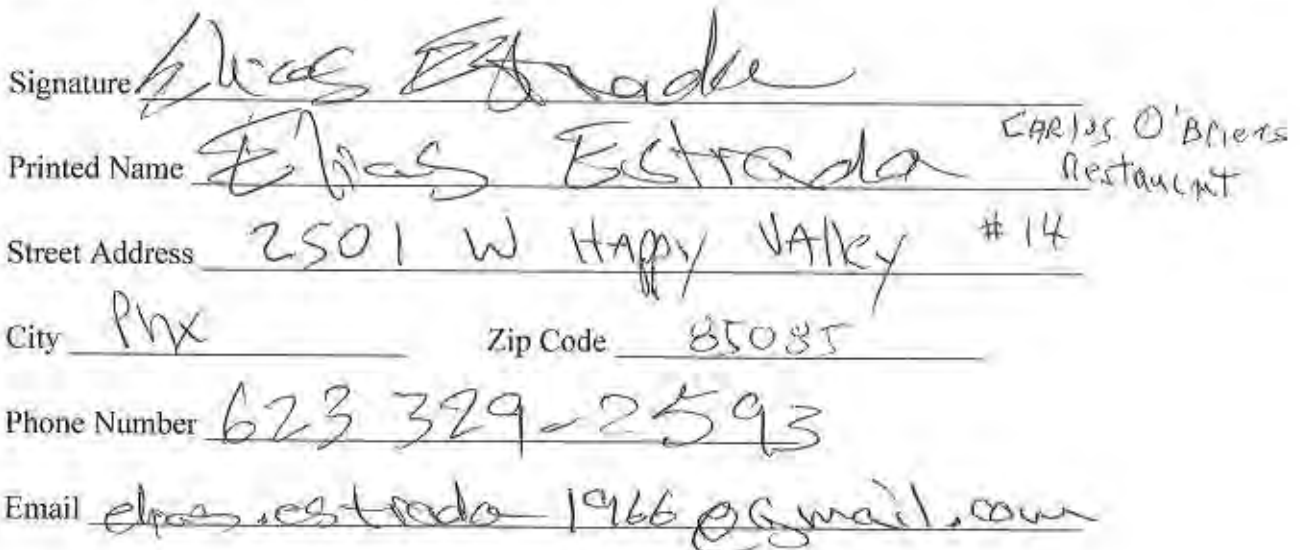 Signature Elias Estrada
Printed Name Elias Estrada CARlos O'BRiens
Restaurant
Street Address 2501 W HAppy VAlley #14
City Phx Zip Code 85085
Phone Number 623 329-2593
Email elias.estrada1966@gmail.com